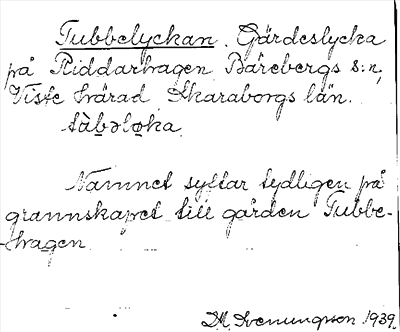 Tubbelyckan. Gärdeslycka
på Riddarhagen Bärebergs s:n,
Viste härad Skaraborgs län.
tàbəlo̱ka.
Namnet syftar tydligen på
grannskapet till gården Tubbe-
-hagen
D.M. Svenungsson 1939.